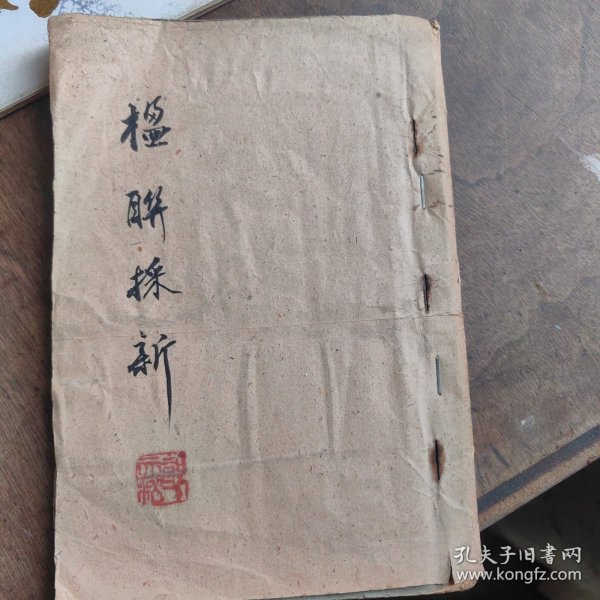 楹聯採新
孔夫子旧書网
www.kongfz.com